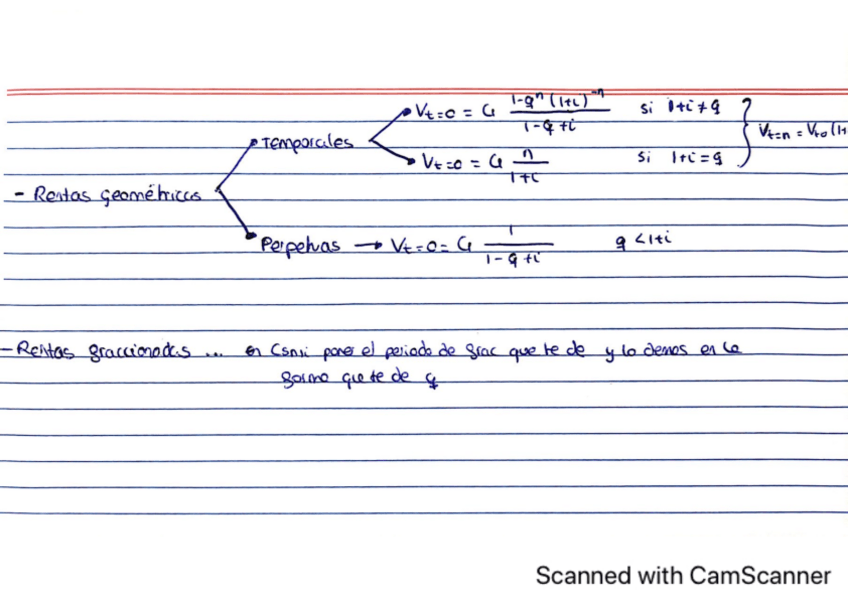 - Rentas geométricas
Temporales
V t=0 = C₁ (1-qⁿ(1+i)⁻ⁿ)/(1-q+i) si 1+i≠q
V t=0 = C₁ n/(1+i) si 1+i=q
V t=n = V t0 (1+
Perpetuas → V t=0 = C₁ 1/(1-q+i) q<1+i
- Rentas fraccionadas ... en poner el periodo de frac que te de y lo demas en la
forma que te de
Scanned with CamScanner